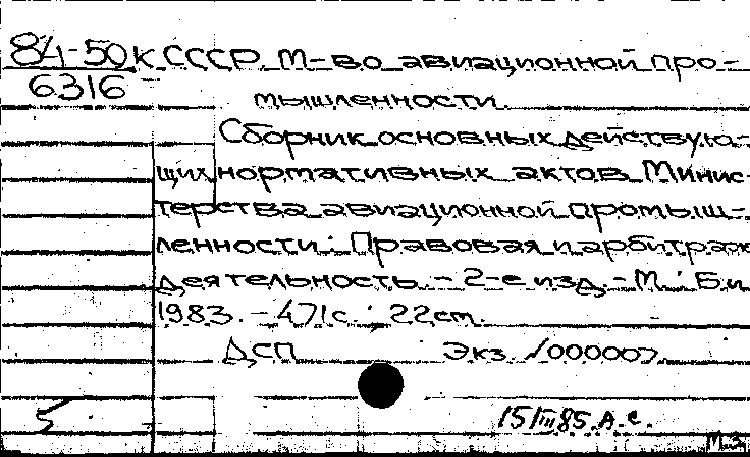 84-50К СССР. М-во авиационной про-
6316
мышленности.
Сборник основных действую-
щих нормативных актов Минис-
терства авиационной промыш-
ленности: Правовая и арбитраж
деятельность. - 2-е изд. - М.: Б.и
1983. - 471с.; 22см.
ДСП Экз.
5
15/III 85. А.с.
М.З.